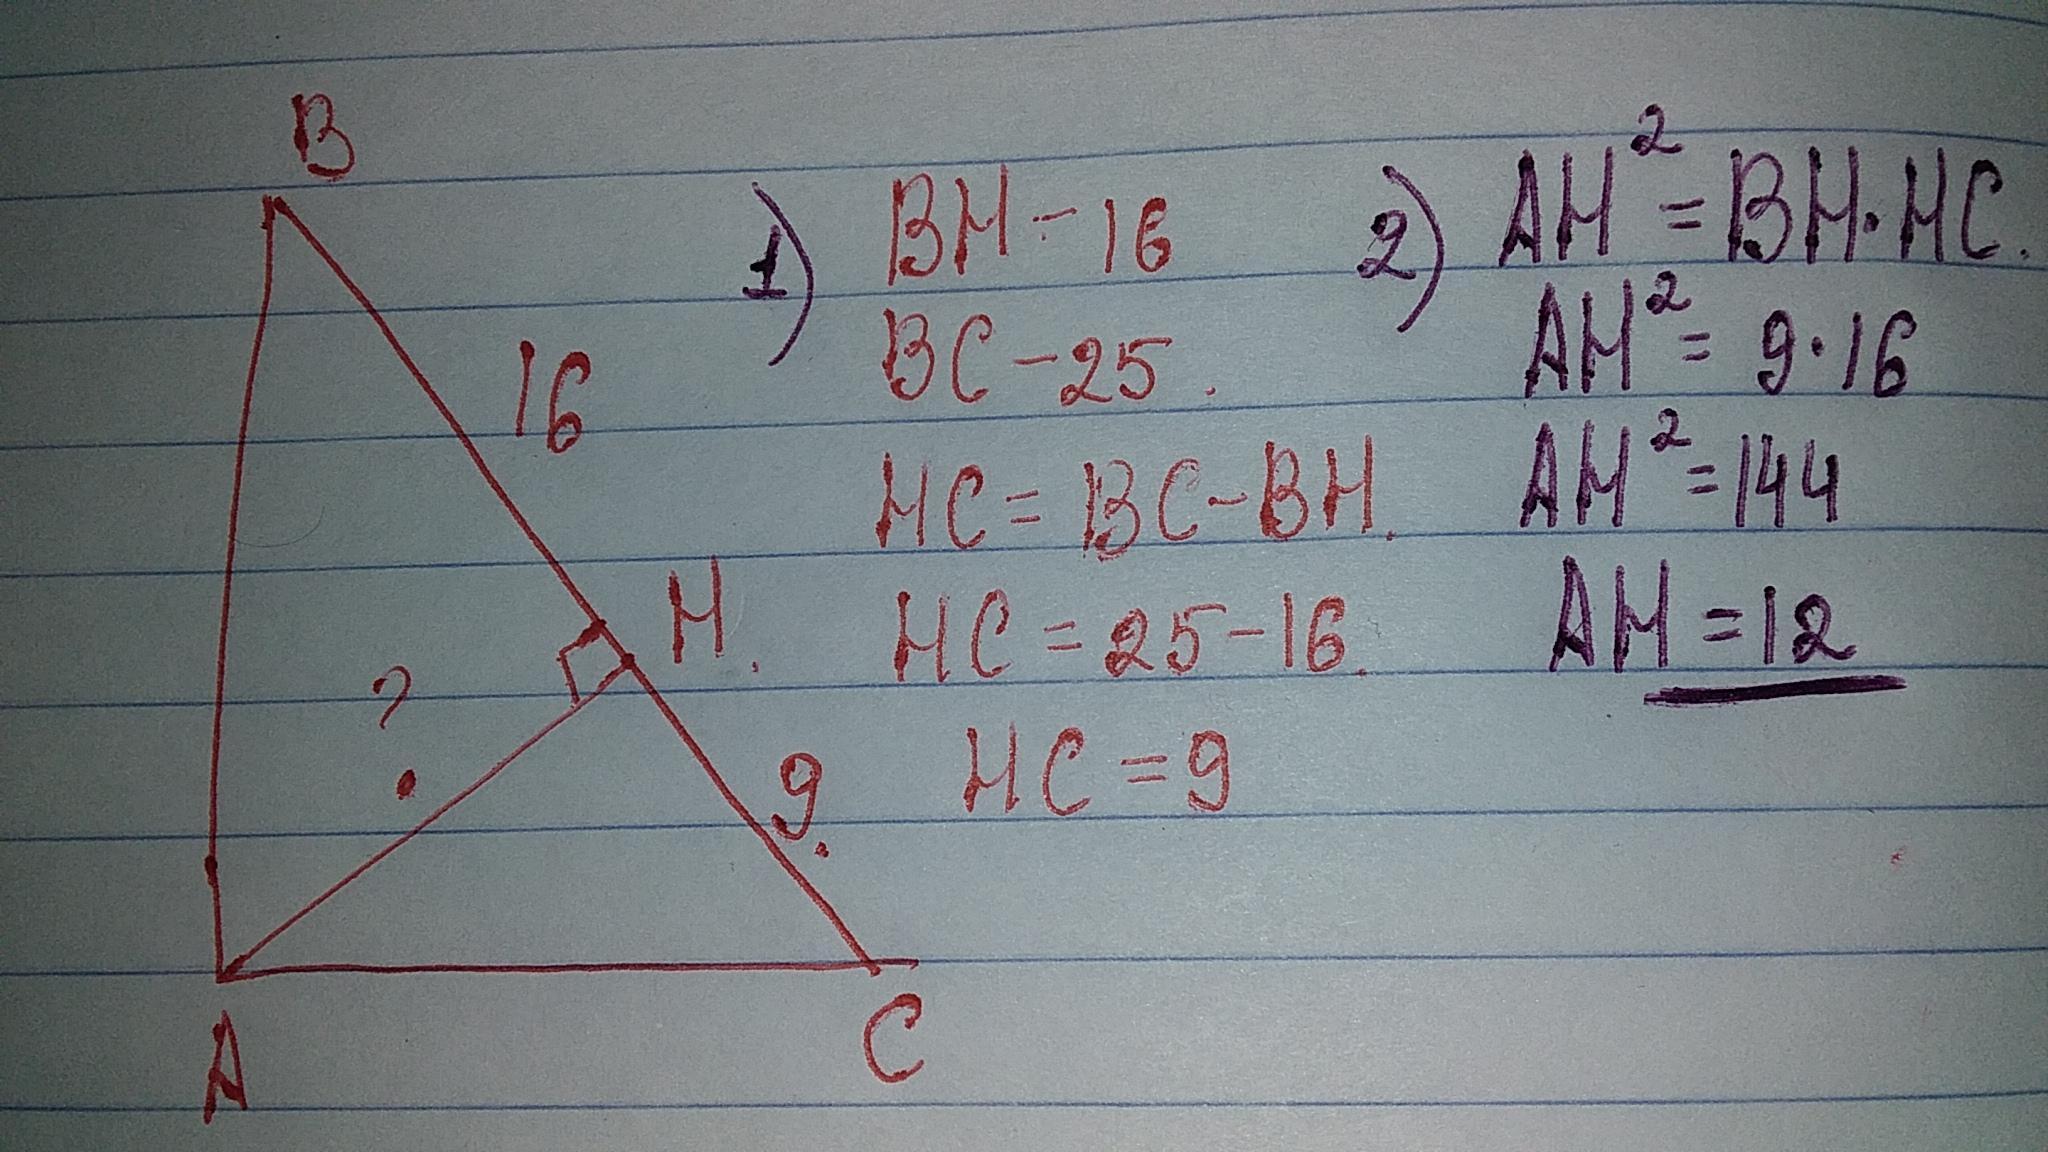 B
16
H.
?
9.
A
C
1) BH - 16
BC - 25.
HC = BC - BH.
HC = 25 - 16.
HC = 9
2) AH² = BH · HC.
AH² = 9 · 16
AH² = 144
AH = 12